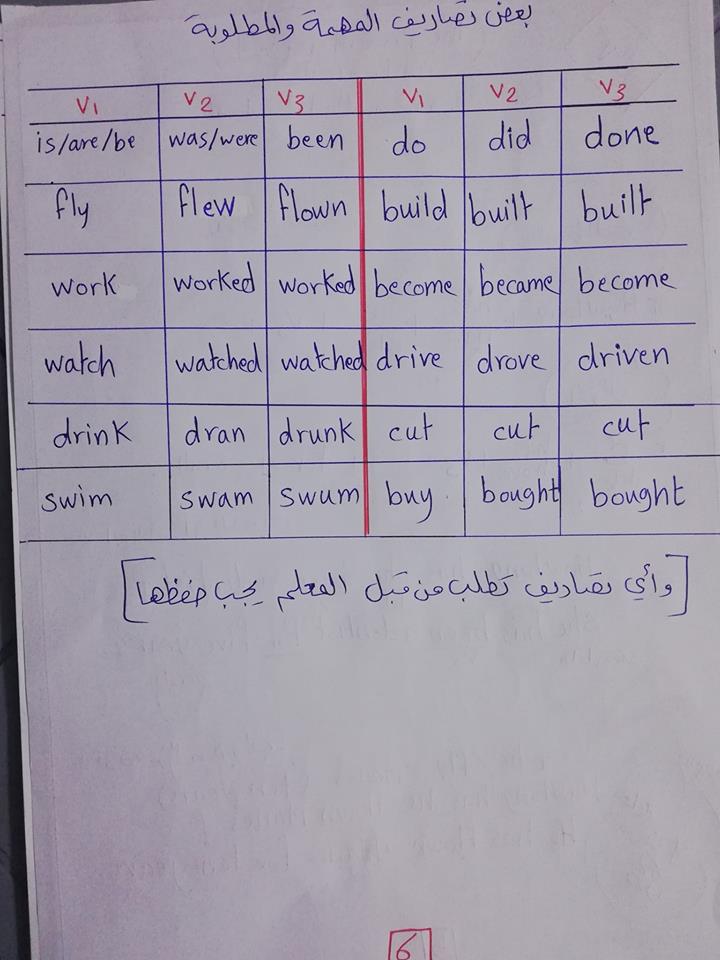 بعض تصاريف المهمة والمطلوبة
V1 V2 V3 V1 V2 V3
is/are/be was/were been do did done
fly flew flown build built built
work worked worked become became become
watch watched watched drive drove driven
drink dran drunk cut cut cut
swim swam swum buy bought bought
[وأي تصاريف تطلب من قبل المعلم يجب حفظها]
6